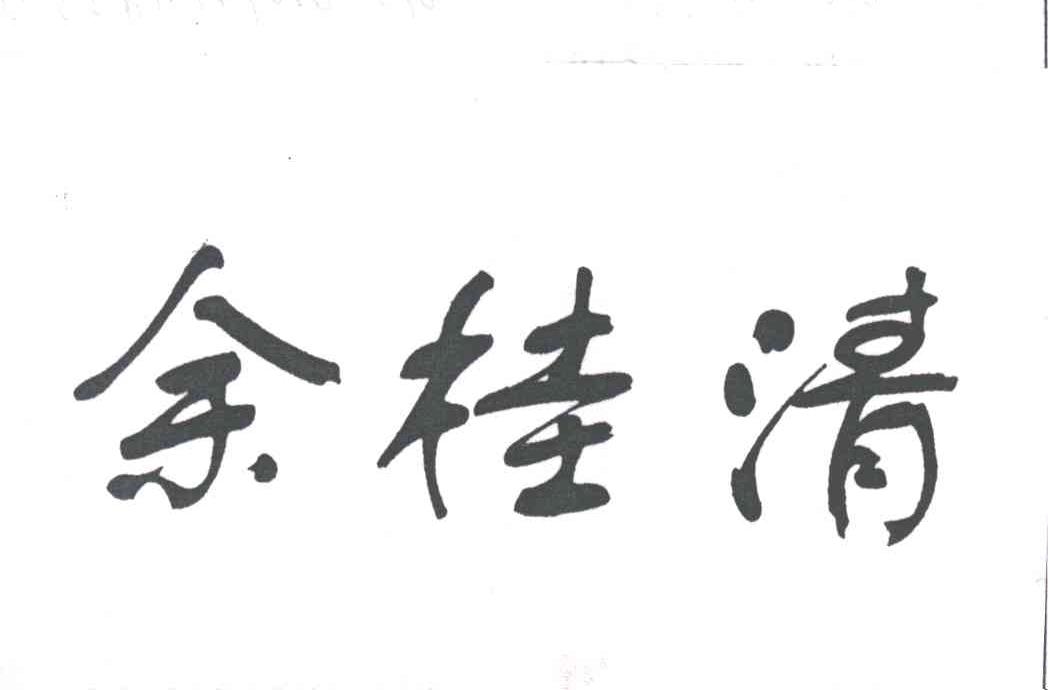 余桂清